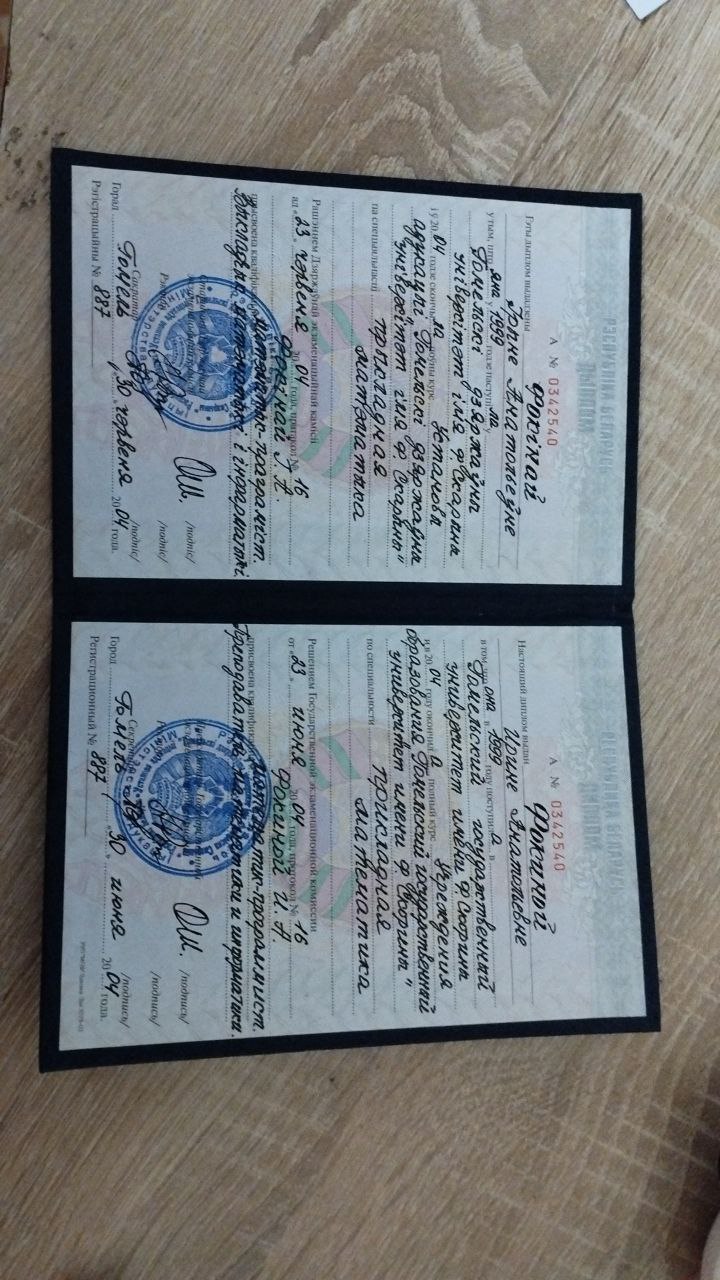 РЭСПУБЛІКА БЕЛАРУСЬ
ДЫПЛОМ
А № 0342540
Гэты дыплом выдадзены
Фокінай
Ірыне Анатольеўне
у тым, што яна ў 1999 годзе паступіла
у Гомельскі дзяржаўны
універсітэт імя Ф. Скарыны
і ў 2004 годзе скончыла поўны курс установы
адукацыі "Гомельскі дзяржаўны
універсітэт імя Ф. Скарыны"
па спецыяльнасці
прыкладная
матэматыка
Рашэннем Дзяржаўнай экзаменацыйнай камісіі
ад "23" чэрвеня 2004 года, пратакол № 16
Фокінай І. А.
прысвоена кваліфікацыя матэматык-праграміст.
Выкладчык матэматыкі і інфарматыкі.
/подпіс/
/подпіс/
Сакратар
/подпіс/
Горад Гомель, "30" чэрвеня 2004 года.
Рэгістрацыйны № 887
РЕСПУБЛИКА БЕЛАРУСЬ
ДИПЛОМ
А № 0342540
Настоящий диплом выдан
Фокиной
Ирине Анатольевне
в том, что она в 1999 году поступила в
Гомельский государственный
университет имени Ф. Скорины
и в 2004 году окончила полный курс учреждения
образования "Гомельский государственный
университет имени Ф. Скорины"
по специальности
прикладная
математика
Решением Государственной экзаменационной комиссии
от "23" июня 2004 года, протокол № 16
Фокиной И. А.
присвоена квалификация математик-программист.
Преподаватель математики и информатики.
/подпись/
/подпись/
Секретарь
/подпись/
Город Гомель, "30" июня 2004 года.
Регистрационный № 887